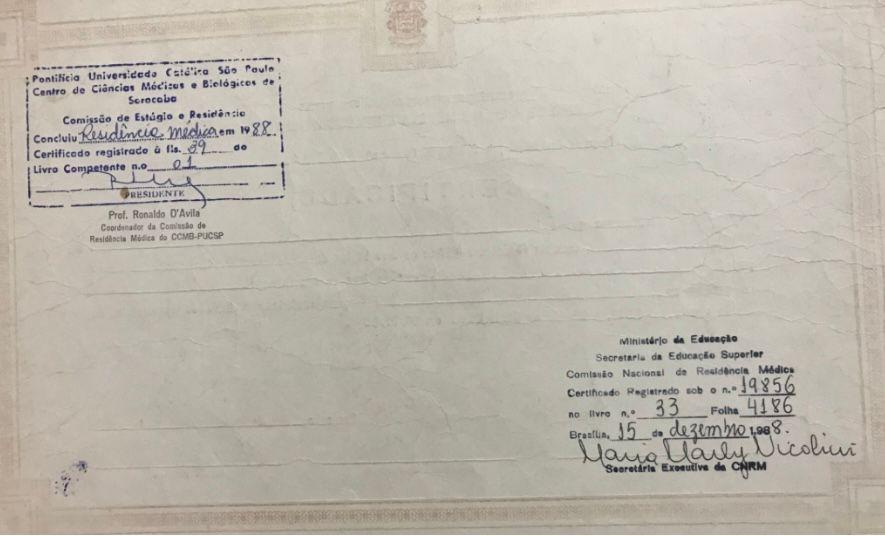 Pontifícia Universidade Católica São Paulo
Centro de Ciências Médicas e Biológicas de
Sorocaba
Comissão de Estágio e Residência
Concluiu Residência Médica em 1988.
Certificado registrado à fls. 39 do
Livro Competente n.o 01
PRESIDENTE
Prof. Ronaldo D'Avila
Coordenador da Comissão de
Residência Médica do CCMB-PUCSP
Ministério da Educação
Secretaria da Educação Superior
Comissão Nacional de Residência Médica
Certificado Registrado sob o n.º 19856
no livro n.º 33 Folha 4186
Brasília, 15 de dezembro 1.988.
Maria Marly Nicolini
Secretária Executiva da CNRM